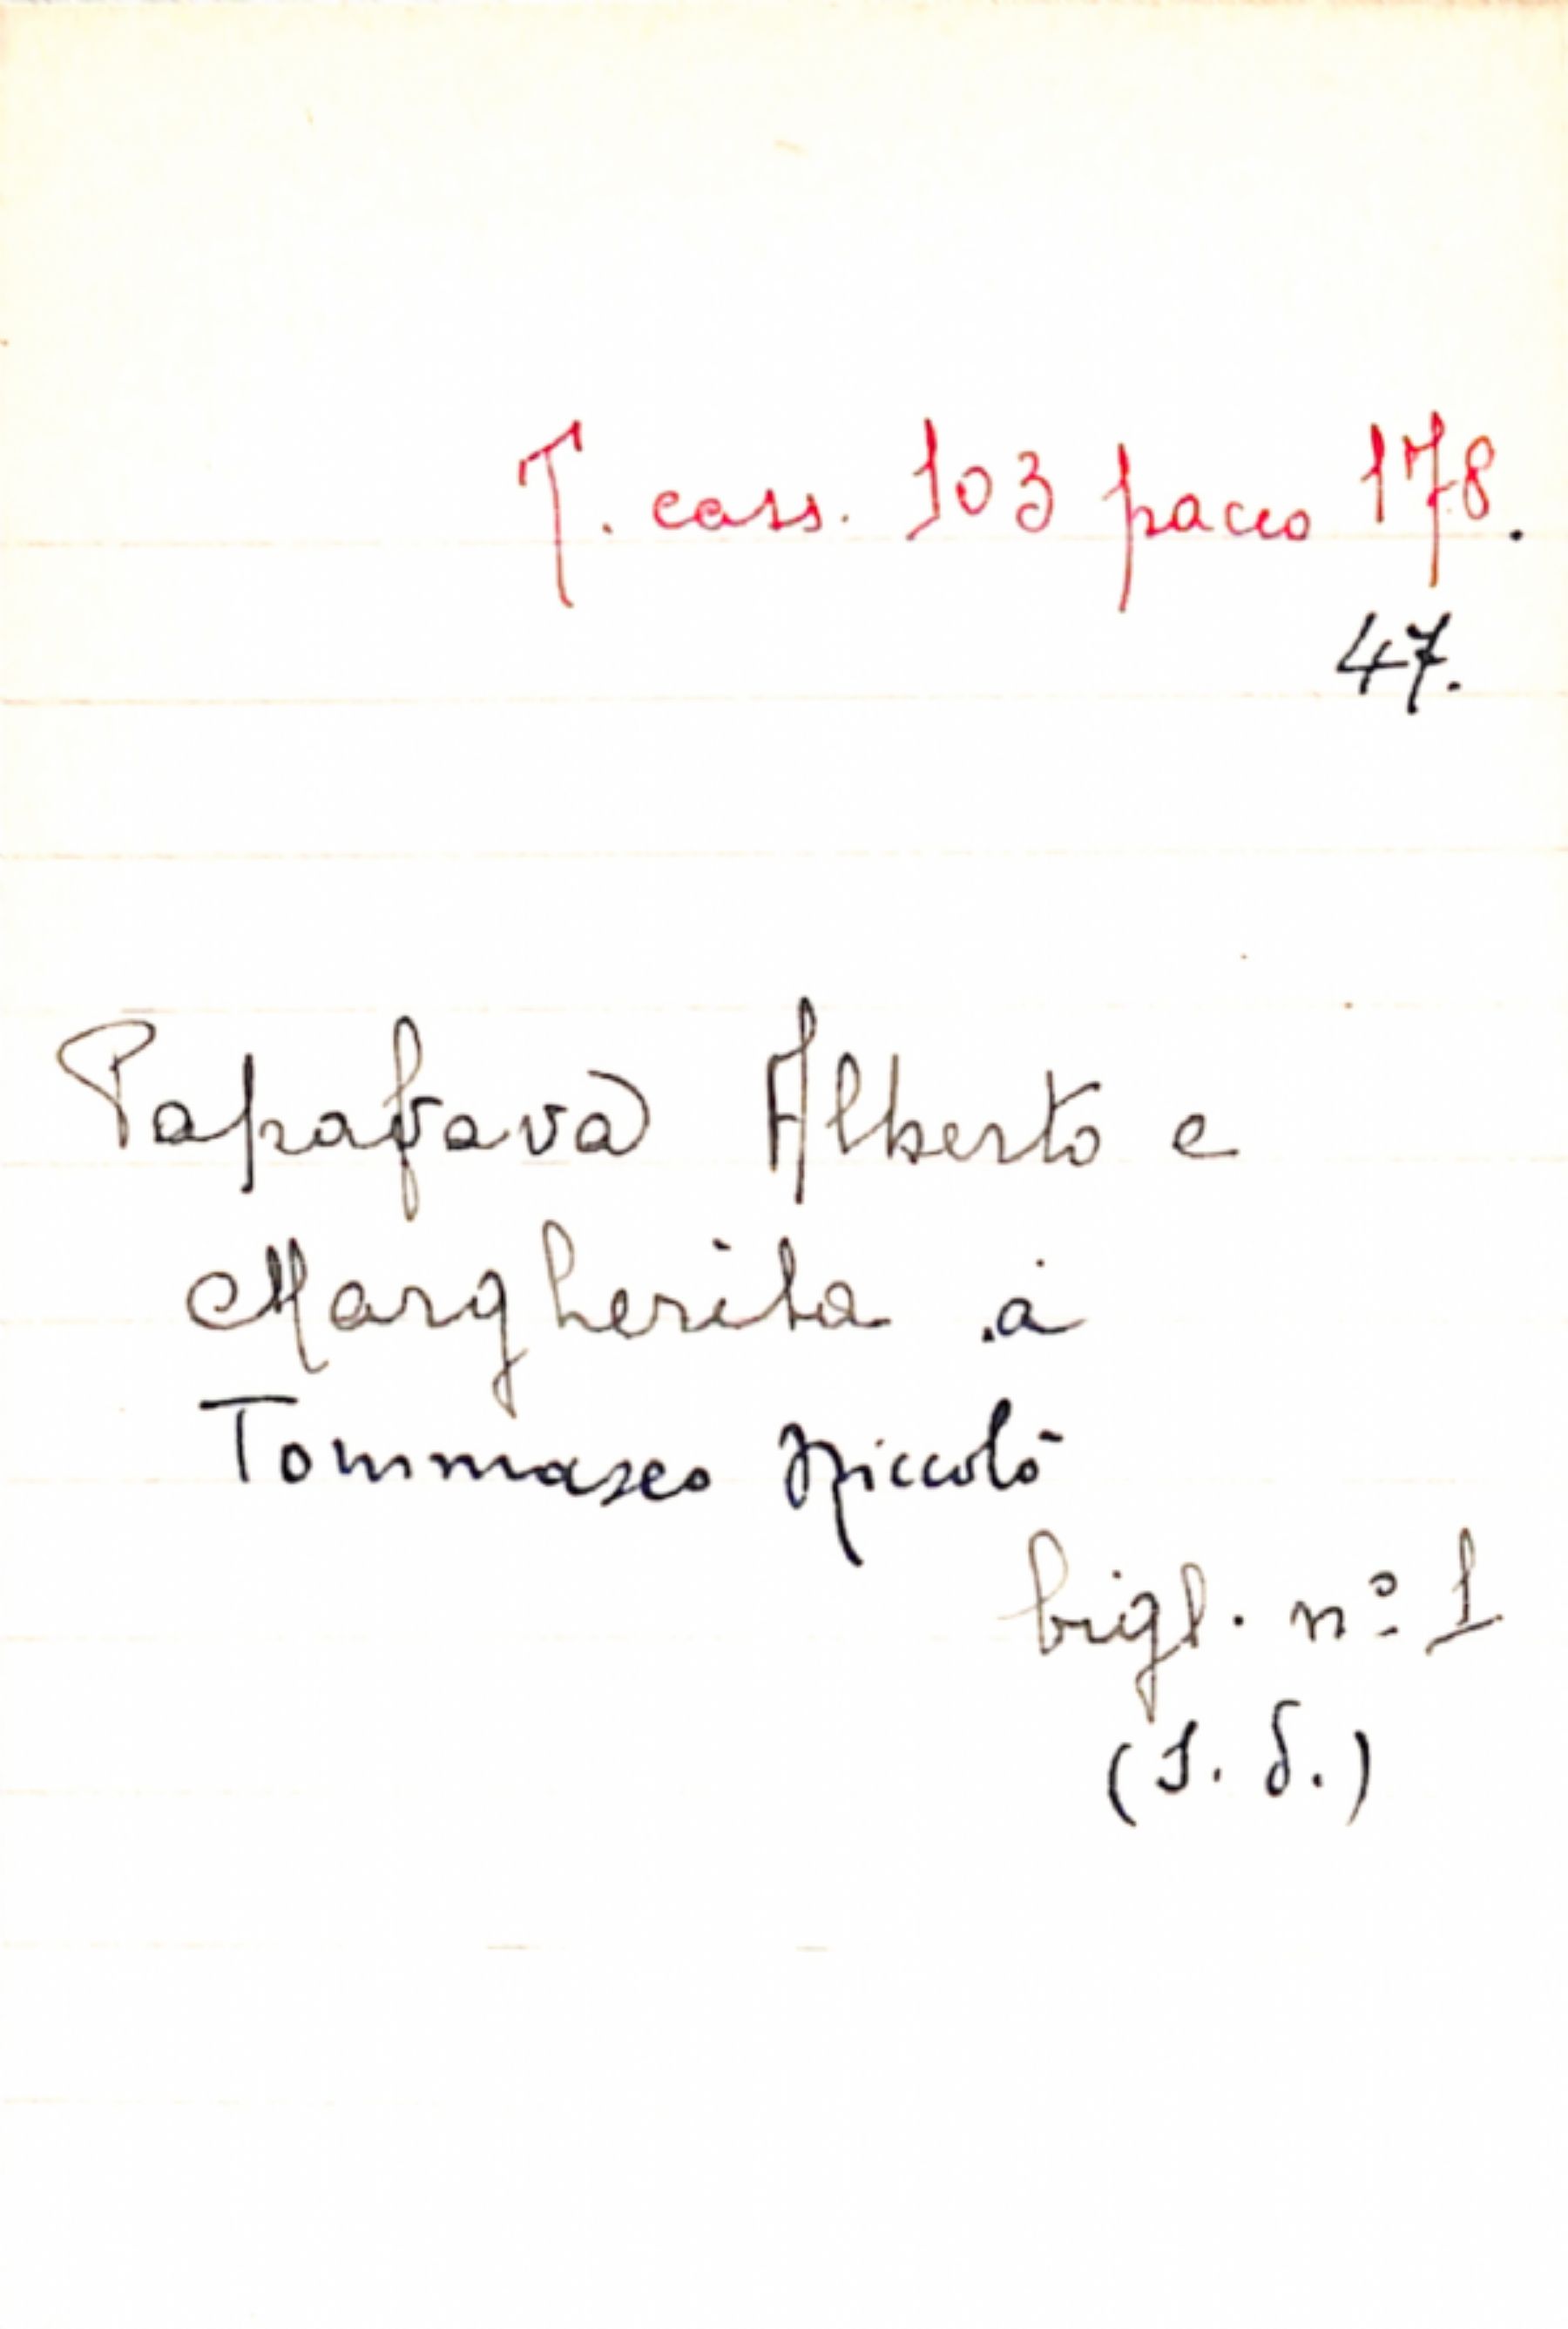 T. cass. 103 pacco 178.
47.
Papafava Alberto e
Margherita a
Tommaseo Niccolò
bigl. nº 1
(s. d.)